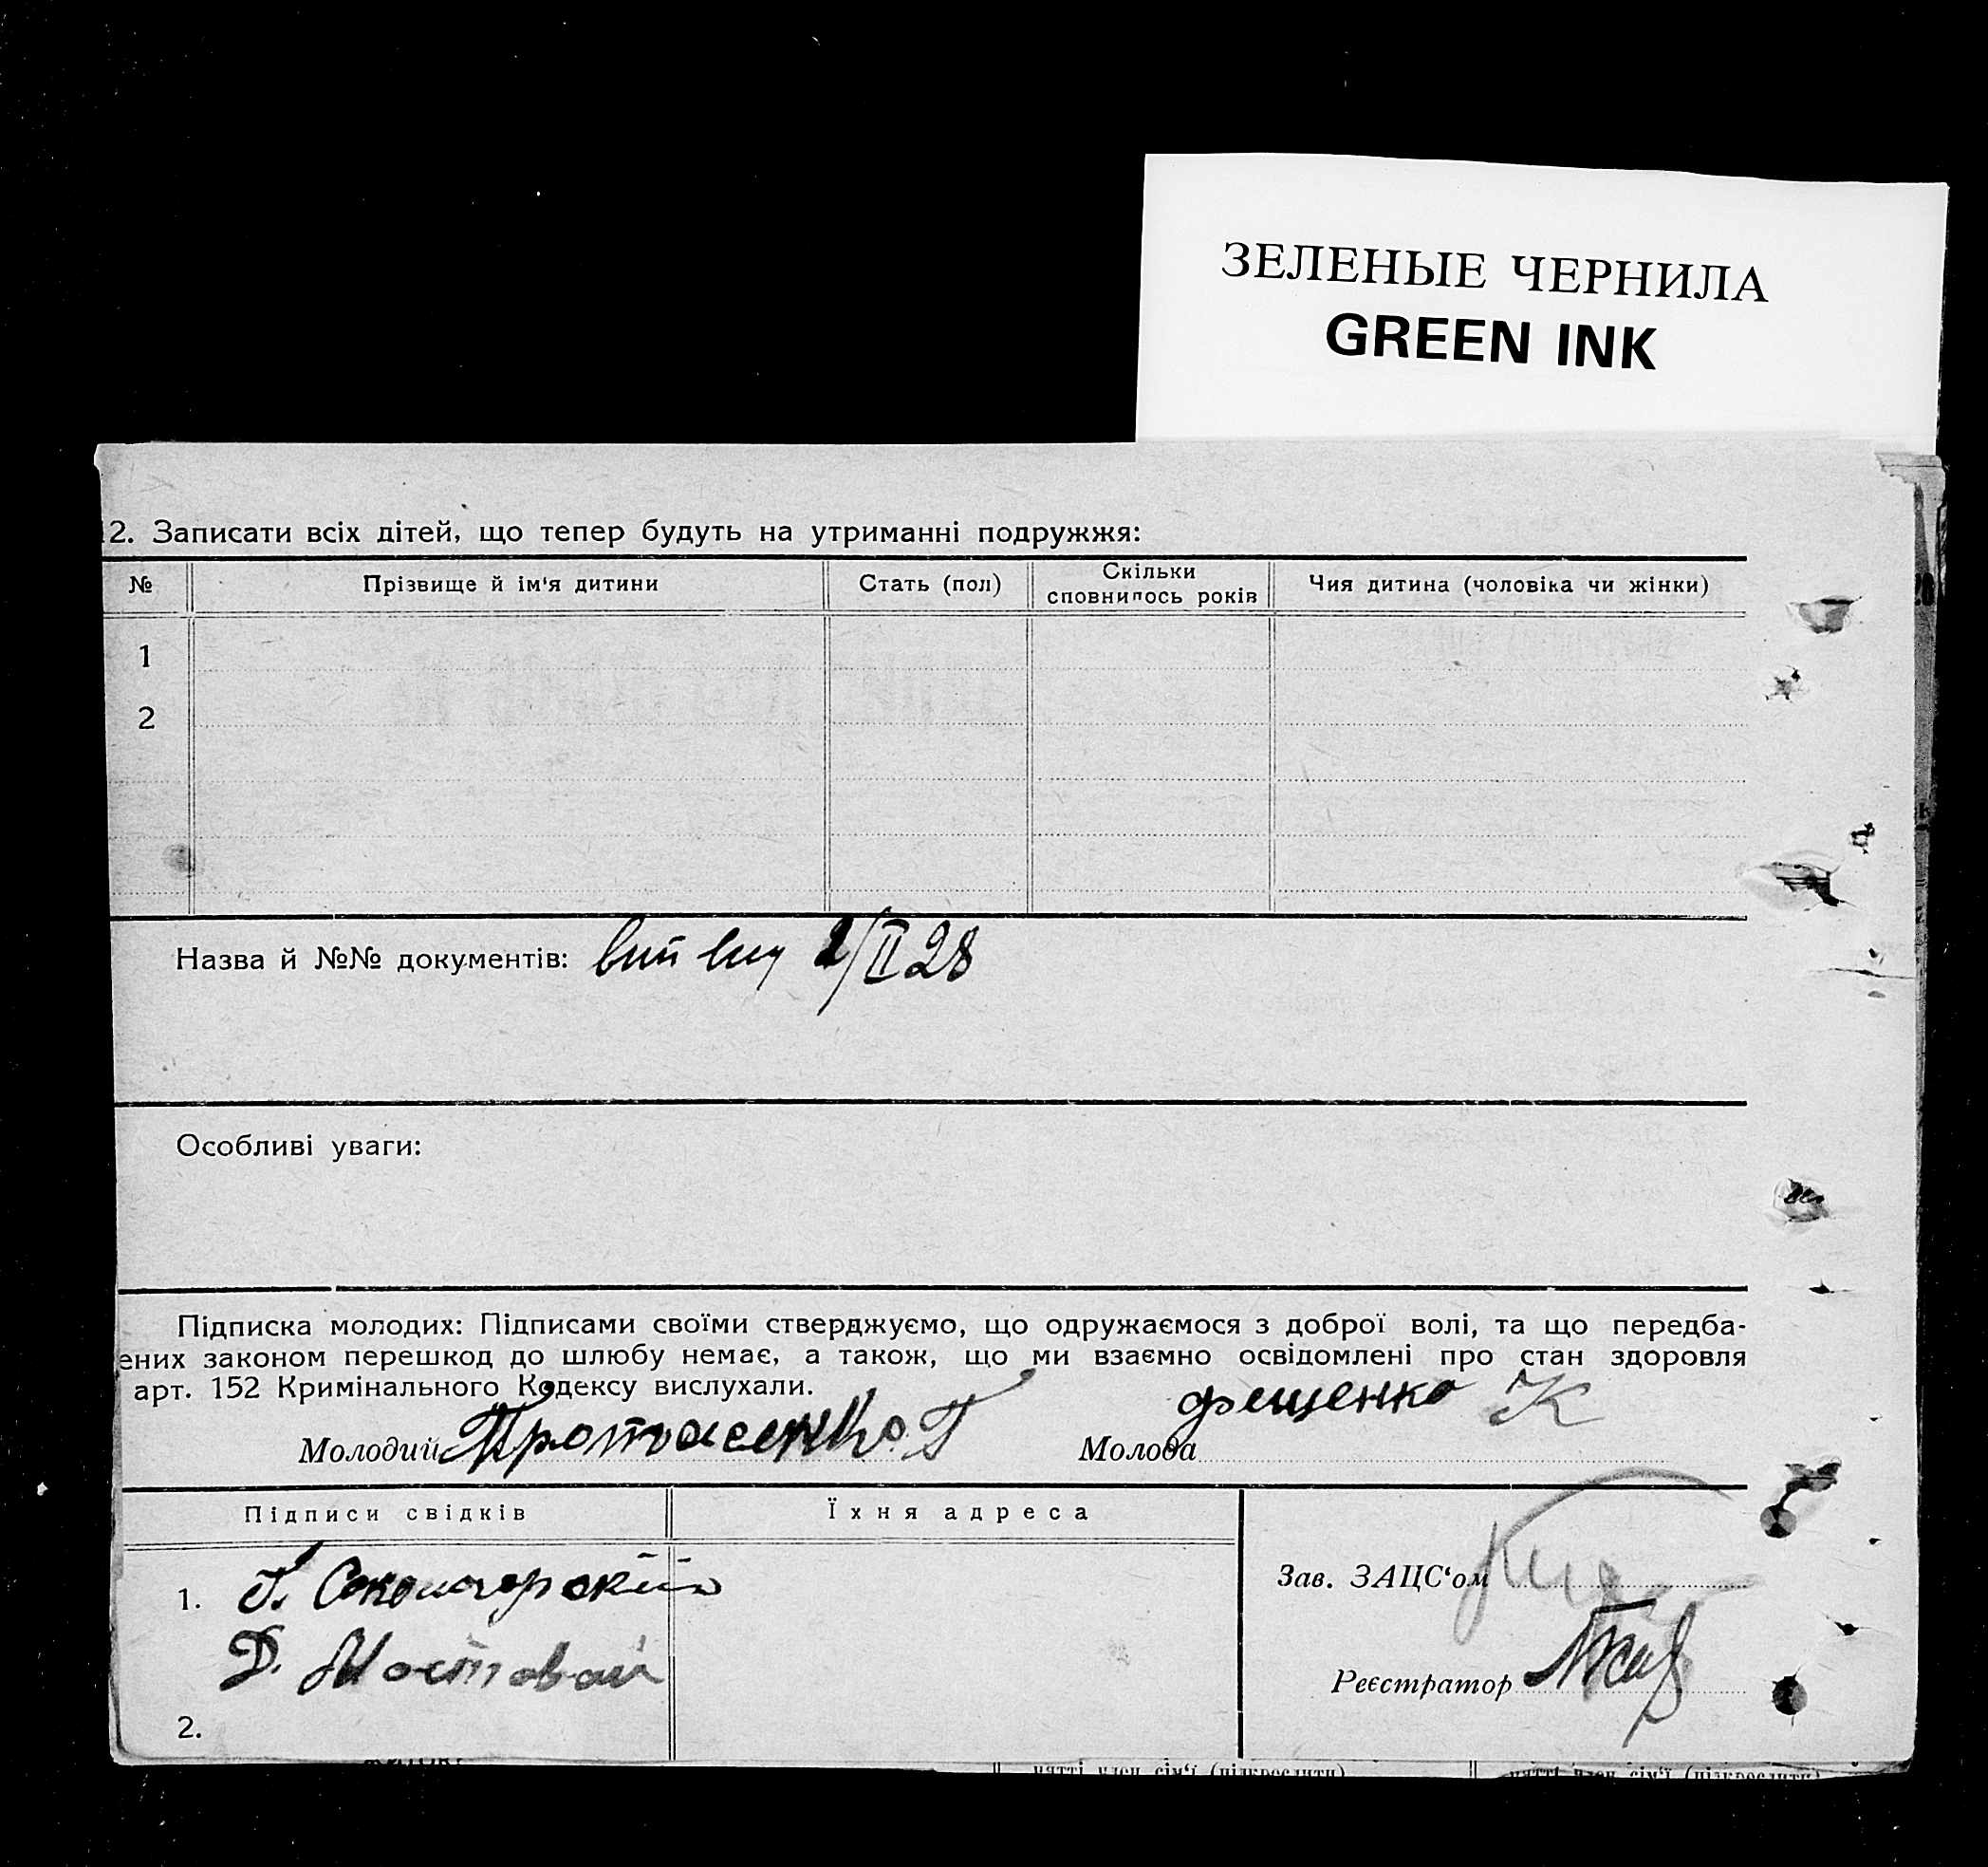 ЗЕЛЕНЫЕ ЧЕРНИЛА
GREEN INK
12. Записати всіх дітей, що тепер будуть на утриманні подружжя:
№ Прізвище й ім'я дитини Стать (пол) Скільки сповнилось років Чия дитина (чоловіка чи жінки)
1
2
Назва й №№ документів: 2/II 28
Особливі уваги:
Підписка молодих: Підписами своїми стверджуємо, що одружаємося з доброї волі, та що передба-
ених законом перешкод до шлюбу немає, а також, що ми взаємно освідомлені про стан здоровля
арт. 152 Кримінального Кодексу вислухали.
Молодий Протасенко Г Молода Фещенко К
Підписи свідків Їхня адреса
Зав. ЗАЦС'ом
1. Г.
Д. Мостовой
Реєстратор
2.
житок?
нятті член сім'ї (підкреслити) нятті член сім'ї (підкреслити)